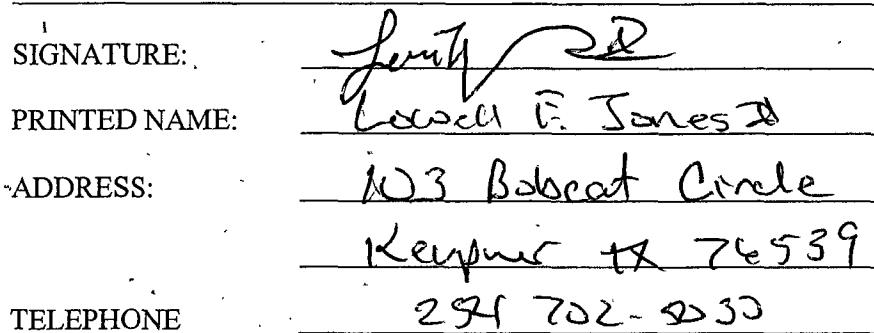 SIGNATURE:
PRINTED NAME: Lowell F. Jones II
ADDRESS: 103 Bobcat Circle
TX 76539
TELEPHONE 254 702-